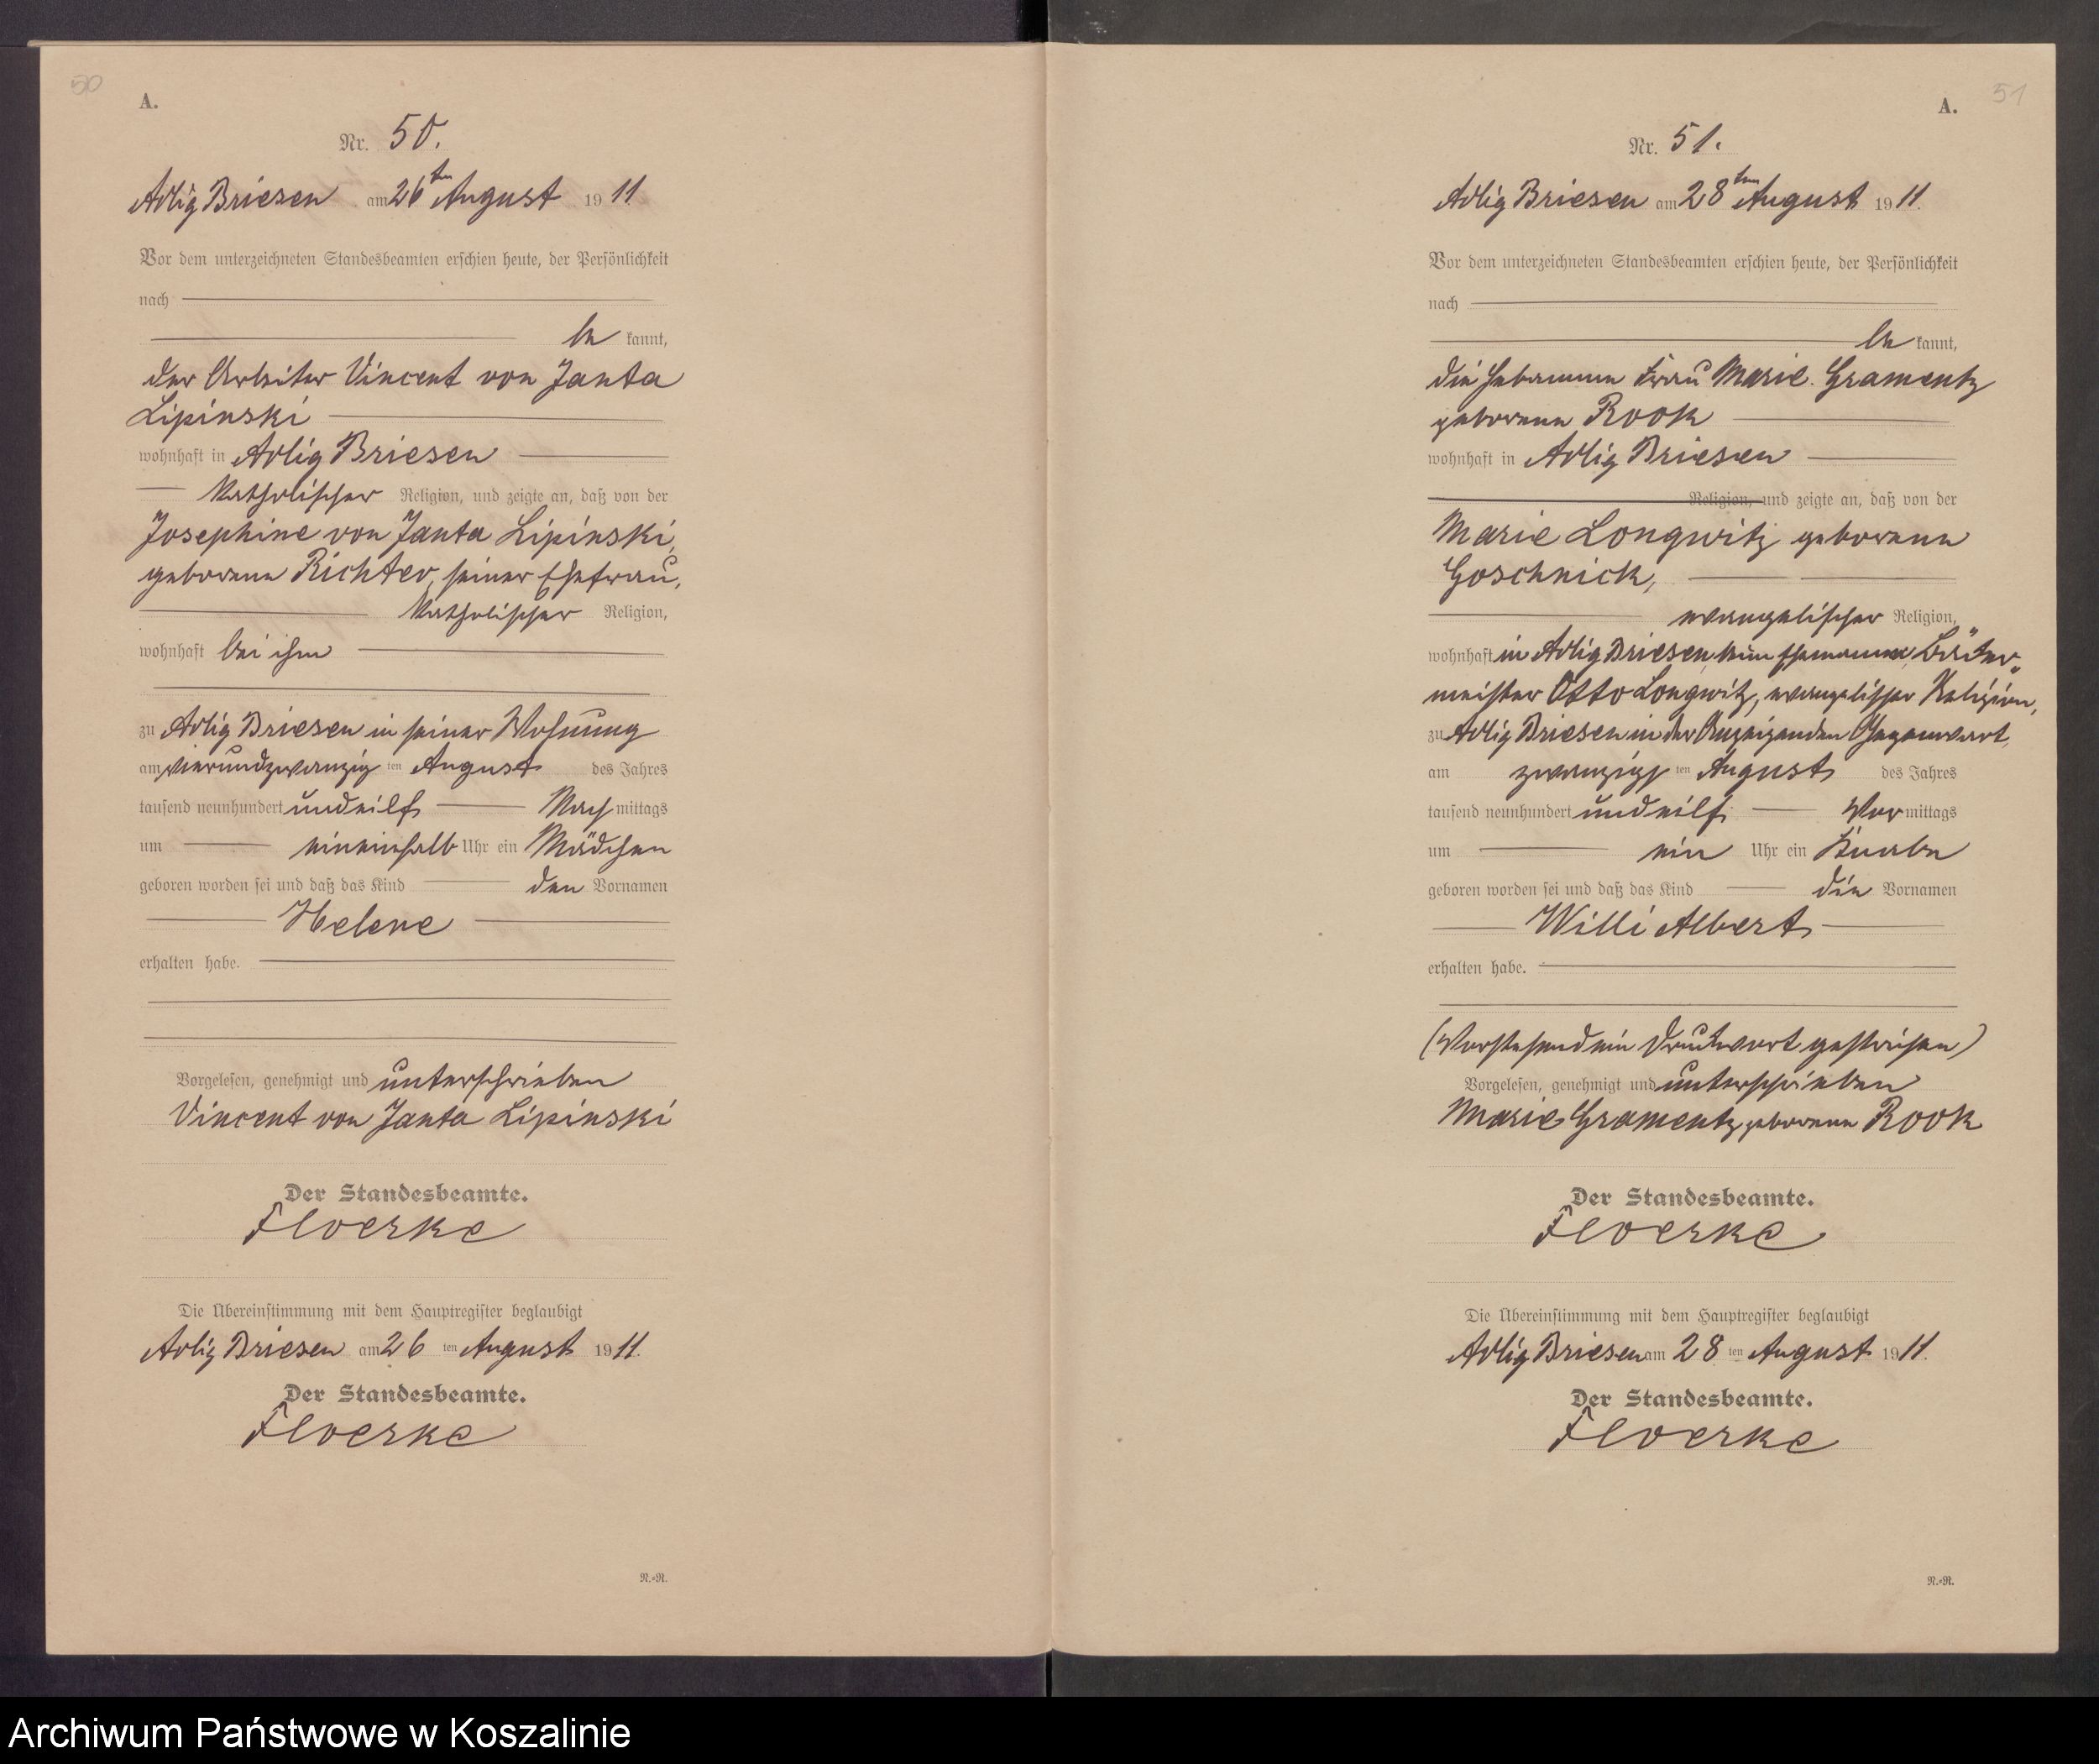 50
A.
Nr. 50.
Adlig Briesen am 26ten August 1911
Vor dem unterzeichneten Standesbeamten erschien heute, der Persönlichkeit
nach
be kannt,
der Arbeiter Vincent von Janta
Lipinski
wohnhaft in Adlig Briesen
katholischer Religion, und zeigte an, daß von der
Josephine von Janta Lipinski,
geborene Richter, seiner Ehefrau,
katholischer Religion,
wohnhaft bei ihm
zu Adlig Briesen in seiner Wohnung
am vierundzwanzig ten August des Jahres
tausend neunhundert undeilf Nach mittags
um eineinhalb Uhr ein Mädchen
geboren worden sei und daß das Kind den Vornamen
Helene
erhalten habe.
Vorgelesen, genehmigt und unterschrieben
Vincent von Janta Lipinski
Der Standesbeamte.
Floerke
Die Übereinstimmung mit dem Hauptregister beglaubigt
Adlig Briesen am 26 ten August 1911.
Der Standesbeamte.
Floerke
N.=R.
51
A.
Nr. 51.
Adlig Briesen am 28ten August 1911.
Vor dem unterzeichneten Standesbeamten erschien heute, der Persönlichkeit
nach
be kannt,
die Hebamme Frau Marie Gramentz
geborene Rook
wohnhaft in Adlig Briesen
Religion, und zeigte an, daß von der
Marie Longwitz geborene
Goschnick,
evangelischer Religion,
wohnhaft in Adlig Briesen beim Ehemanne,
meister Otto Longwitz, evangelischer Religion,
zu Adlig Briesen in der Anzeigenden Gegenwart,
am zwanzigs ten August des Jahres
tausend neunhundert undeilf Vor mittags
um ein Uhr ein Knabe
geboren worden sei und daß das Kind die Vornamen
Willi Albert
erhalten habe.
(Vorstehend ein Druckwort gestrichen)
Vorgelesen, genehmigt und unterschrieben
Marie Gramentz geborene Rook
Der Standesbeamte.
Floerke
Die Übereinstimmung mit dem Hauptregister beglaubigt
Adlig Briesen am 28 ten August 1911.
Der Standesbeamte.
Floerke
N.=R.
Archiwum Państwowe w Koszalinie